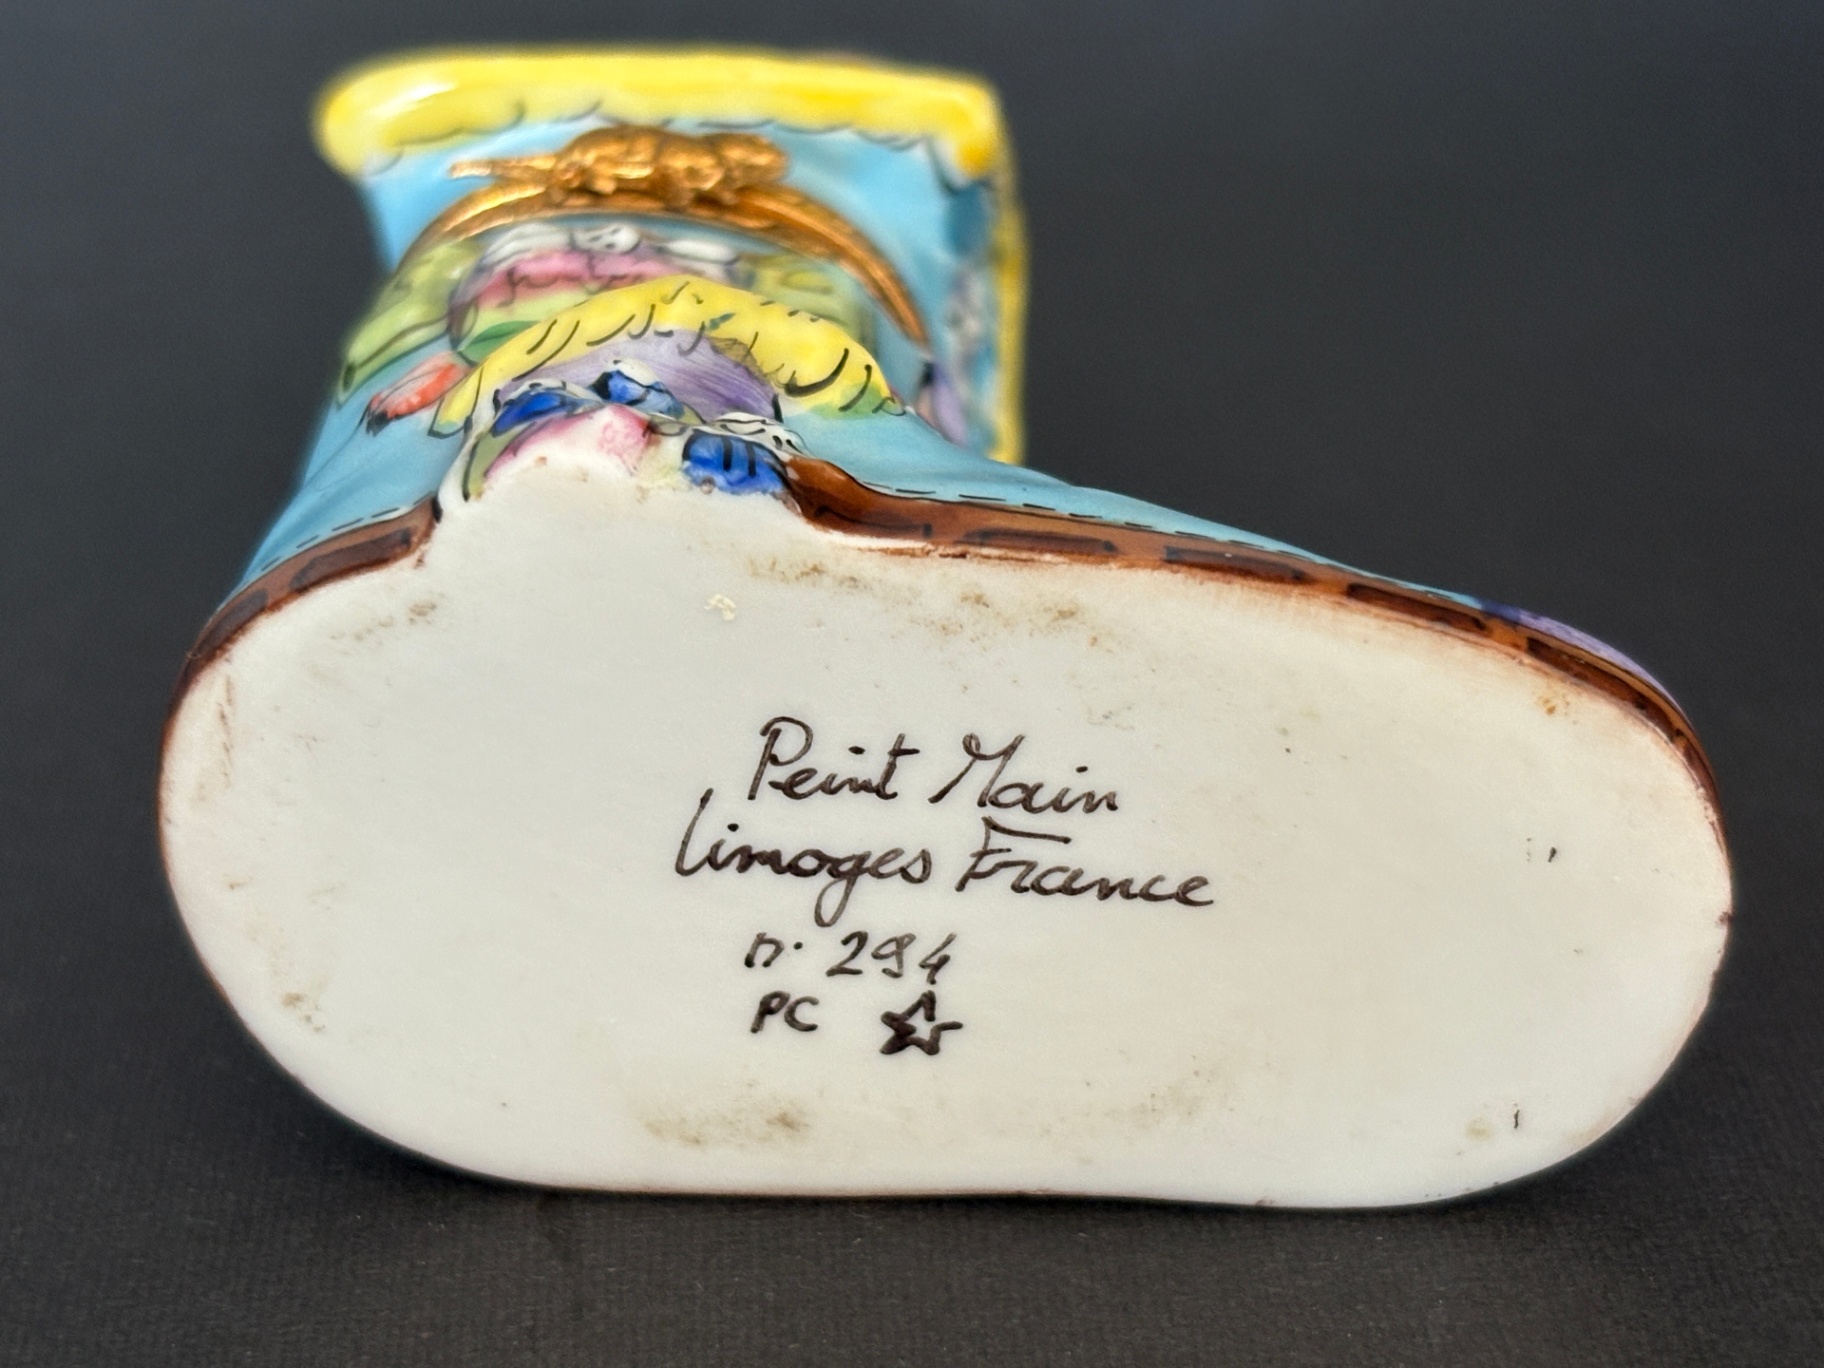 Peint Main
Limoges France
n. 294
PC